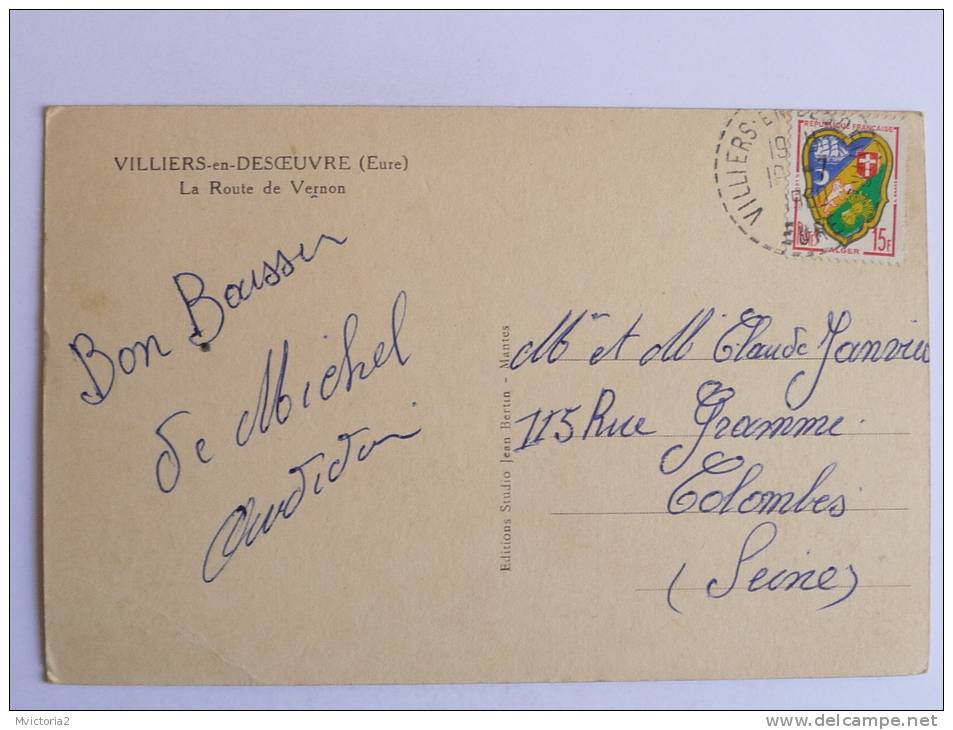 VILLIERS-en-DESŒUVRE (Eure)
La Route de Vernon
Bon Baisser
de Michel
Editions Studio Jean Bertin - Mantes
VILLIERS-EN
19
REPUBLIQUE FRANÇAISE
POSTES
15F
ALGER
Mr et M Claude Janvier
115 Rue Gramme
Colombes
(Seine)
Mvictoria2
delcampe.net